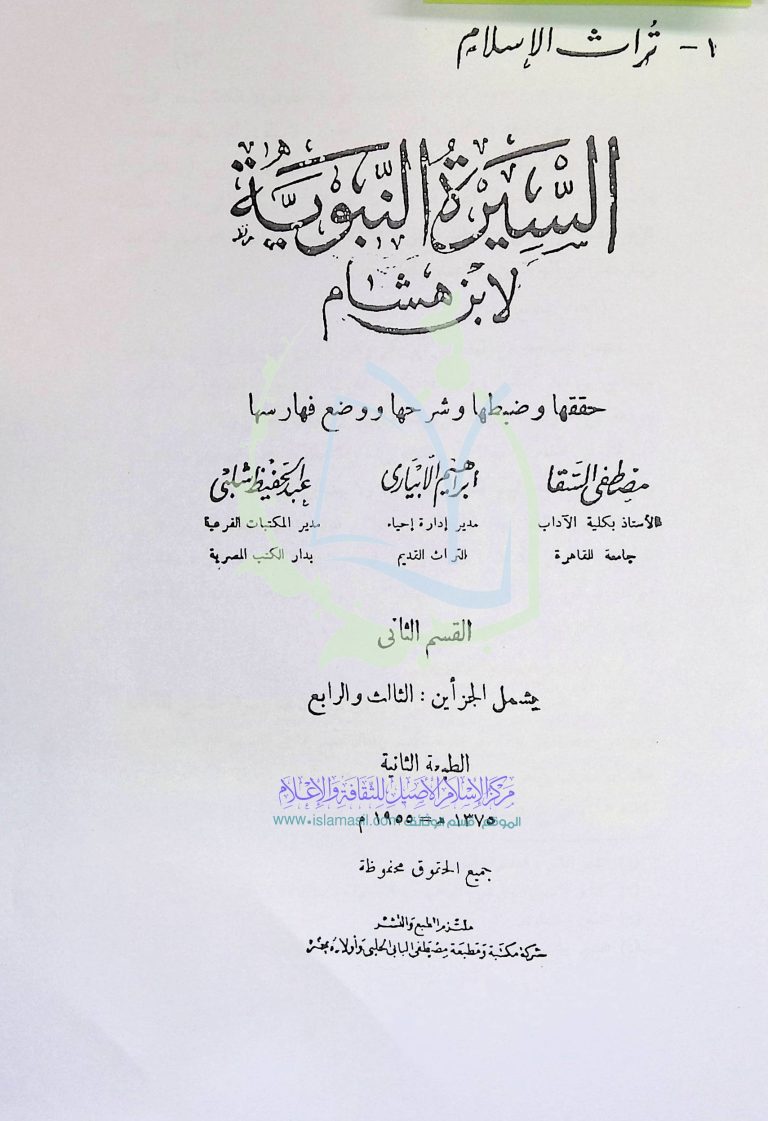 ١ - تُراث الإسلام
السِّيرَةُ النَّبَوِيَّة
لابن هشام
حققها وضبطها وشرحها ووضع فهارسها
مصطفى السقا
ابراهيم الابيارى
عبد الحفيظ شلبى
الأستاذ بكلية الآداب
مدير إدارة إحياء
مدير المكتبات الفرعية
جامعة القاهرة
التراث القديم
بدار الكتب المصرية
القسم الثانى
يشمل الجزأين : الثالث والرابع
الطبعة الثانية
مركز الإسلام الأصيل للثقافة والإعلام
www.islamasil.com
١٣٧٥ هـ = ١٩٥٥ م
جميع الحقوق محفوظة
ملتزم الطبع والنشر
شركة مكتبة ومطبعة مصطفى البابى الحلبى وأولاده بمصر